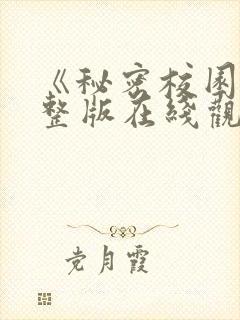 《秘密校园
整版在綫觀
党月霞